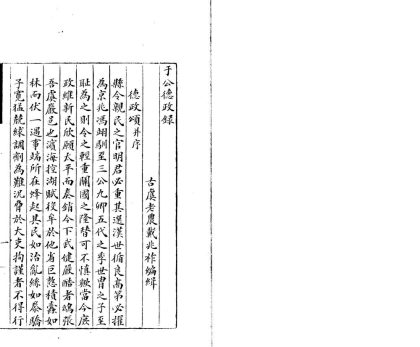 于公德政錄
古虞老農戴兆祚編緝
德政頌并序
縣令親民之官明君必重其選漢世循良高第必擢
為京兆馮翊馴至三公九卿五代之季世冑之子至
恥為之則令之輕重關國之隆替可不慎歟當今庶
政維新民欣願太平而奏銷令下武健嚴酷者鴟張
吾虞嚴邑也濱海控湖賦役牟於他省巨憝積蠹如
林而伏一遇事端所在蜂起其民如治亂絲如奏驕
子寬猛競絿調劑為難況脅於大吏拘謹者不得行